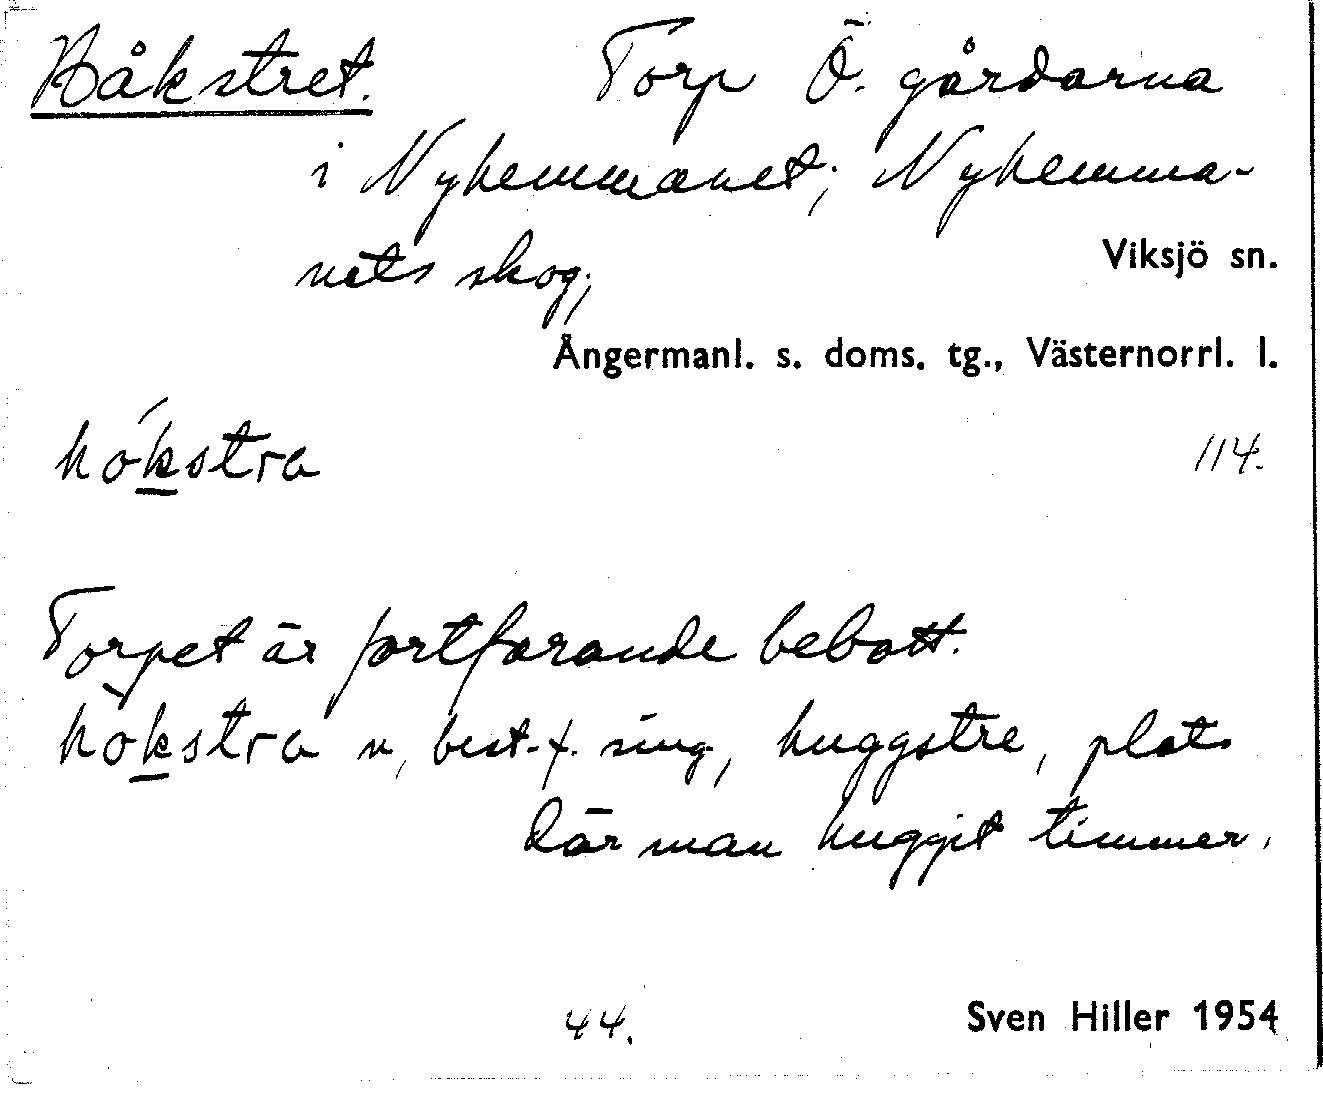 Håkstret. Torp Ö. gårdarna
i Nyhemmanet; Nyhemma-
nets skog;
Viksjö sn.
Ångermanl. s. doms. tg., Västernorrl. l.
hókstra
114.
Torpet är fortfarande bebott.
hòkstra n, best. f. sing, huggstre, plats
där man huggit timmer.
44.
Sven Hiller 1954